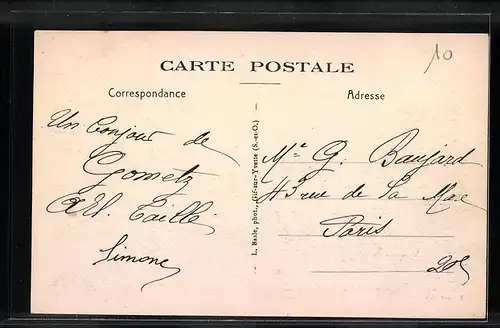 10
CARTE POSTALE
Correspondance
Adresse
Un bonjour de
Gometz
Simone
L. Basle, phot., Gif-sur-Yvette (S.-et-O.)
Me G. Baujard
43 rue de la Mare
Paris
20e